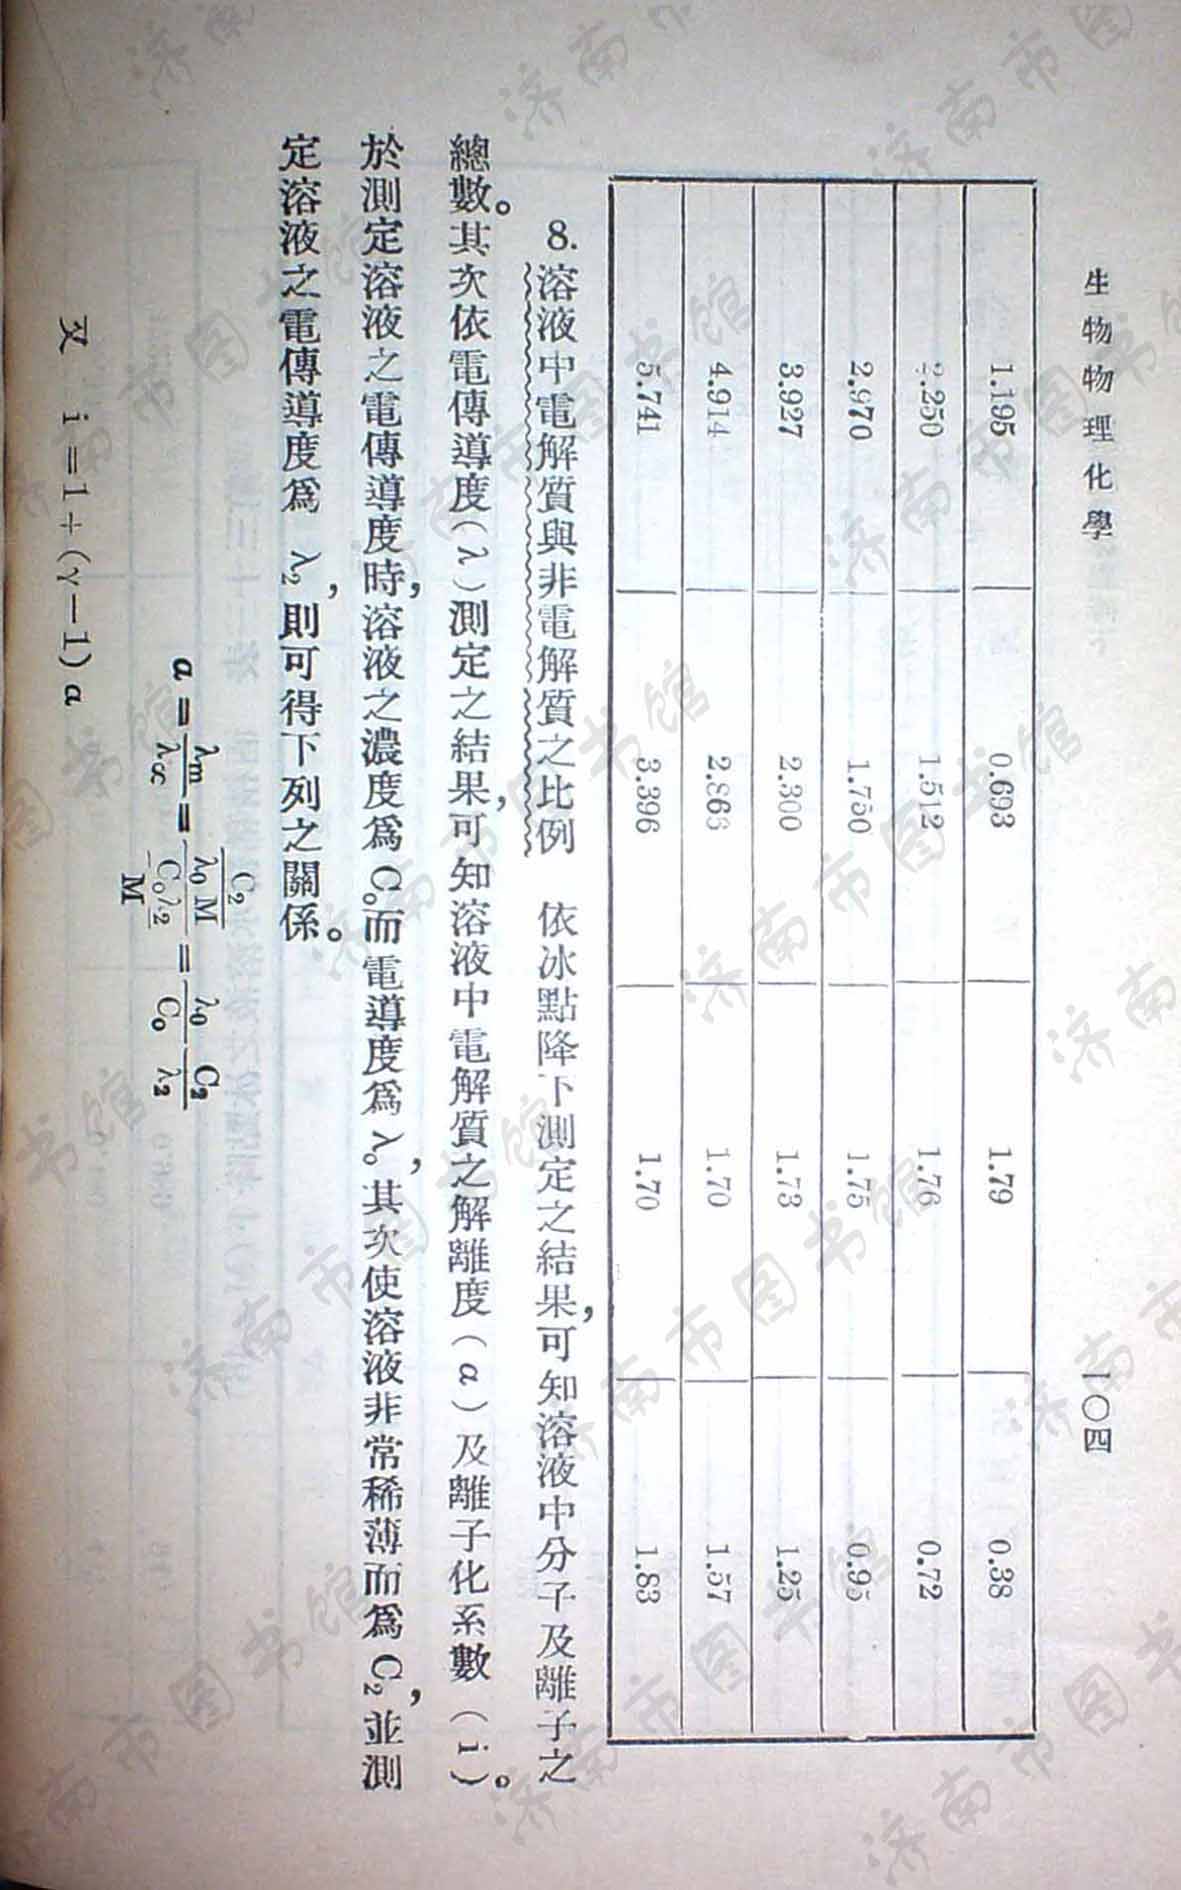 生物物理化學
一〇四
1.195 0.693 1.79 0.38
2.250 1.512 1.76 0.72
2.970 1.750 1.75 0.95
3.927 2.300 1.73 1.25
4.914 2.863 1.70 1.57
5.741 3.396 1.70 1.83
8. 溶液中電解質與非電解質之比例 依冰點降下測定之結果，可知溶液中分子及離子之
總數。其次依電傳導度(λ)測定之結果，可知溶液中電解質之解離度(α)及離子化系數(i)。
於測定溶液之電傳導度時，溶液之濃度爲C₀而電導度爲λ₀，其次使溶液非常稀薄而爲C₂，並測
定溶液之電傳導度爲λ₂，則可得下列之關係。
α = λm/λ∝ = (C₂/λ₀M)/(C₀λ₂/M) = λ₀/C₀ C₂/λ₂
又 i=1+(γ−1)α
济南市图书馆